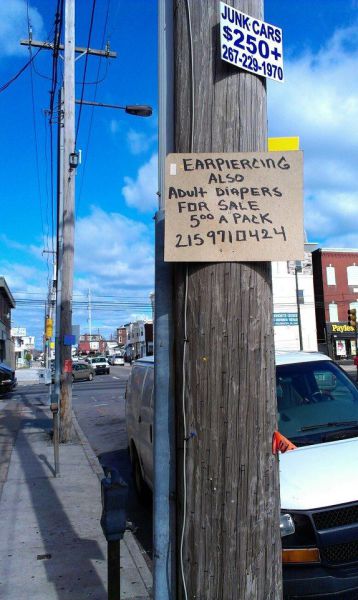 JUNK-CARS
$250+
267-229-1970
EARPIERCING
ALSO
ADULT DIAPERS
FOR SALE
5⁰⁰ A PACK
2159710424
Payles